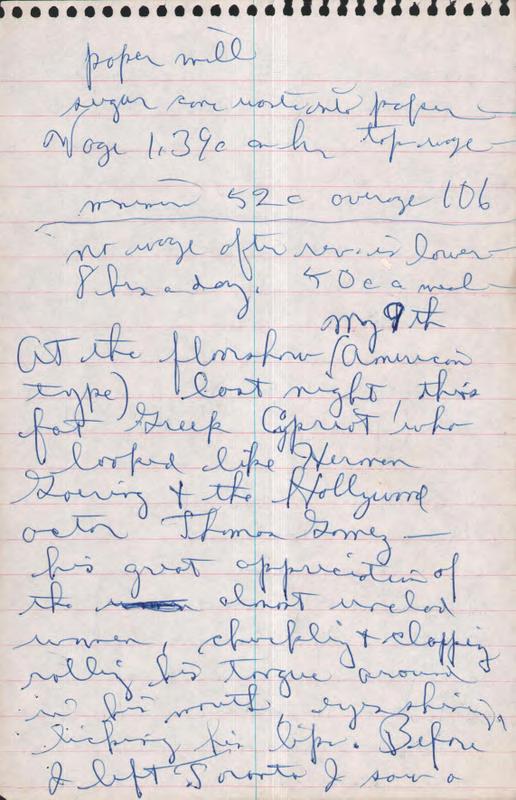 paper mill
sugar cane waste into paper
Wage 1.39c an hr top wage
minimum 52c average 106
no wage after rev. is lower
8 hrs a day. 50c a meal
May 9th
At the floorshow (American
type) last night, this
fat Greek Cypriot who
looked like Herman
Goering & the Hollywood
actor Thomas Gomez —
his great appreciation of
the almost unclad
women, chuckling & clapping
rolling his tongue around
in his mouth, eyes shining,
licking his lips. Before
I left Toronto I saw a